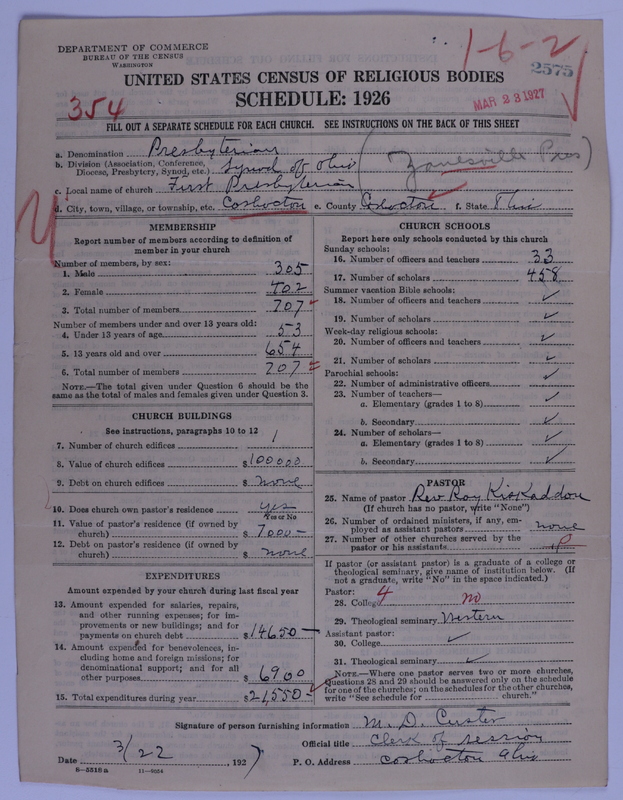 1-6-2
DEPARTMENT OF COMMERCE
BUREAU OF THE CENSUS
WASHINGTON
2575
UNITED STATES CENSUS OF RELIGIOUS BODIES
SCHEDULE: 1926
354
MAR 23 1927
FILL OUT A SEPARATE SCHEDULE FOR EACH CHURCH. SEE INSTRUCTIONS ON THE BACK OF THIS SHEET
a. Denomination Presbyterian
b. Division (Association, Conference, Diocese, Presbytery, Synod, etc.) Synod of Ohio (Zanesville Pres)
c. Local name of church First Presbyterian
d. City, town, village, or township, etc. Coshocton e. County Coshocton f. State Ohio
MEMBERSHIP
Report number of members according to definition of
member in your church
Number of members, by sex:
1. Male 305
2. Female 402
3. Total number of members 707
Number of members under and over 13 years old:
4. Under 13 years of age 53
5. 13 years old and over 654
6. Total number of members 707
NOTE.—The total given under Question 6 should be
same as the total of males and females given under Question 3.
CHURCH BUILDINGS
See instructions, paragraphs 10 to 12
7. Number of church edifices 1
8. Value of church edifices $100000
9. Debt on church edifices $ none
10. Does church own pastor's residence yes
Yes or No
11. Value of pastor's residence (if owned by
church) $ 7000—
12. Debt on pastor's residence (if owned by
church) $ none
EXPENDITURES
Amount expended by your church during last fiscal year
13. Amount expended for salaries, repairs,
and other running expenses; for im-
provements or new buildings; and for
payments on church debt $14650—
14. Amount expended for benevolences, in-
cluding home and foreign missions; for
denominational support; and for all
other purposes $6900
15. Total expenditures during year $21,550—
CHURCH SCHOOLS
Report here only schools conducted by this church
Sunday schools:
16. Number of officers and teachers 33
17. Number of scholars 458
Summer vacation Bible schools:
18. Number of officers and teachers ✓
19. Number of scholars ✓
Week-day religious schools:
20. Number of officers and teachers ✓
21. Number of scholars ✓
Parochial schools:
22. Number of administrative officers ✓
23. Number of teachers—
a. Elementary (grades 1 to 8) ✓
b. Secondary ✓
24. Number of scholars—
a. Elementary (grades 1 to 8) ✓
b. Secondary ✓
PASTOR
25. Name of pastor Rev Roy Kiskaddon
(If church has no pastor, write "None")
26. Number of ordained ministers, if any, em-
ployed as assistant pastors none
27. Number of other churches served by the
pastor or his assistants
If pastor (or assistant pastor) is a graduate of a college or
theological seminary, give name of institution below. (If
not a graduate, write "No" in the space indicated.)
Pastor:
28. College 4 no
29. Theological seminary Western
Assistant pastor:
30. College ✓
31. Theological seminary ✓
NOTE.—Where one pastor serves two or more churches,
Questions 28 and 29 should be answered only on the schedule
for one of the churches; on the schedules for the other churches,
write "See schedule for church."
Signature of person furnishing information M. D. Custer
Official title Clerk of session
Date 3/22 1927 P. O. Address Coshocton Ohio
8-5518a 11-9054